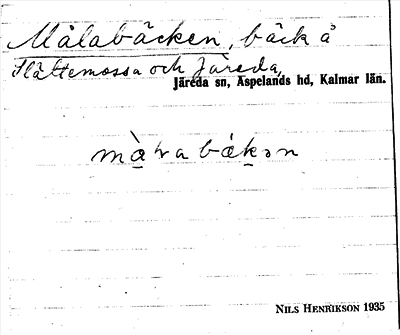 Målabäcken, bäck å
Slättemossa och Järeda,
Järeda sn, Aspelands hd, Kalmar län.
Nils Henrikson 1935